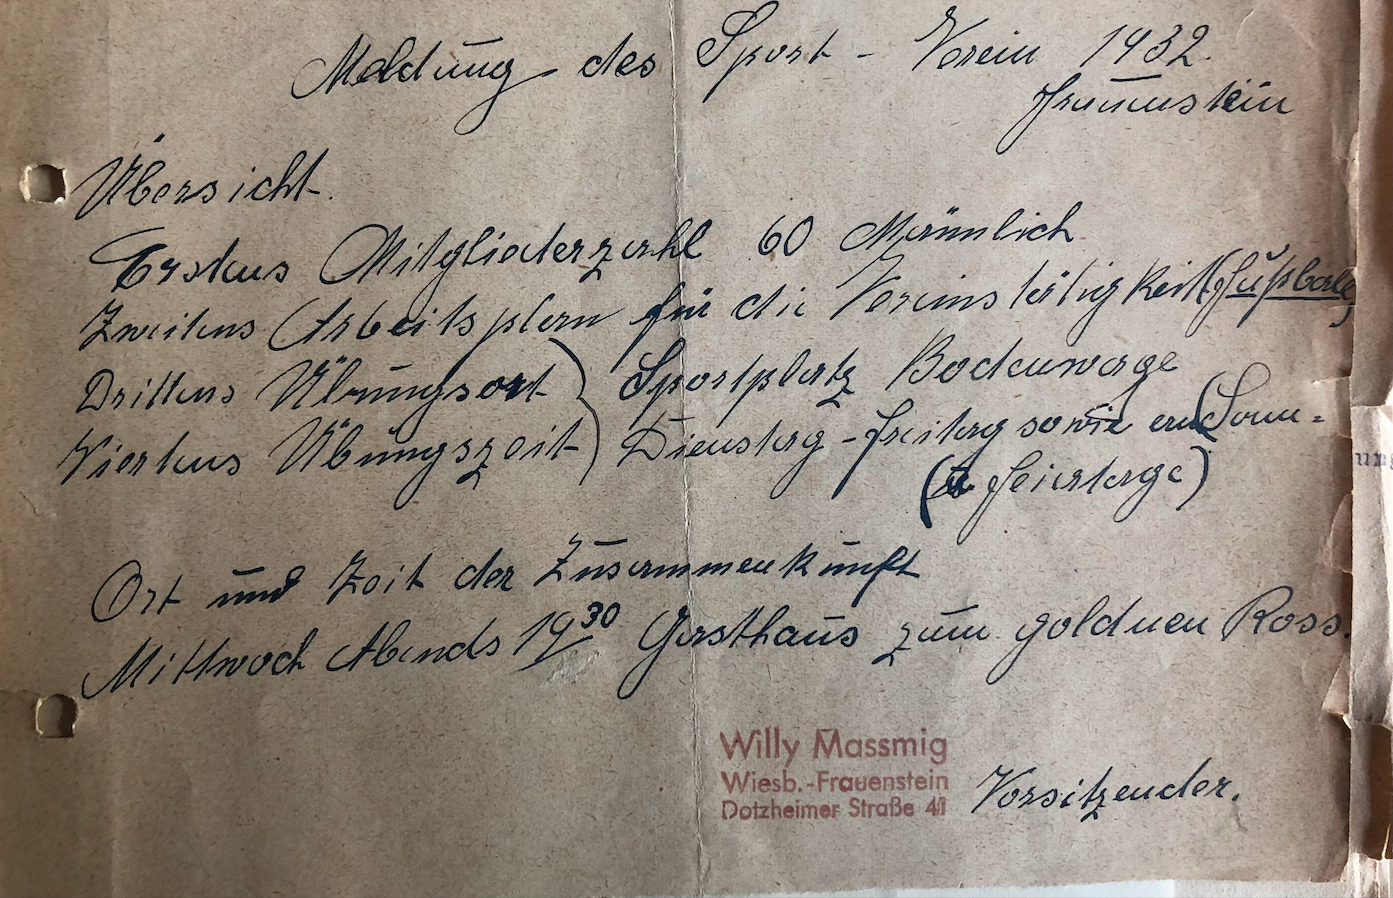 Meldung des Sport - Verein 1932.
Frauenstein
Übersicht.
Erstens Mitgliederzahl 60 Männlich
Zweitens Arbeitsplan für die Vereinstätigkeit (Fußball)
Drittens Übungsort ) Sportplatz Bodenwaage
Viertens Übungszeit ) Dienstag - Freitag sowie an (Sonn=
(u. Feiertage)
Ort und Zeit der Zusammenkunft
Mittwoch Abends 19 30 Gasthaus zum goldnen Ross.
Willy Massmig
Wiesb.-Frauenstein
Dotzheimer Straße
Vorsitzender.